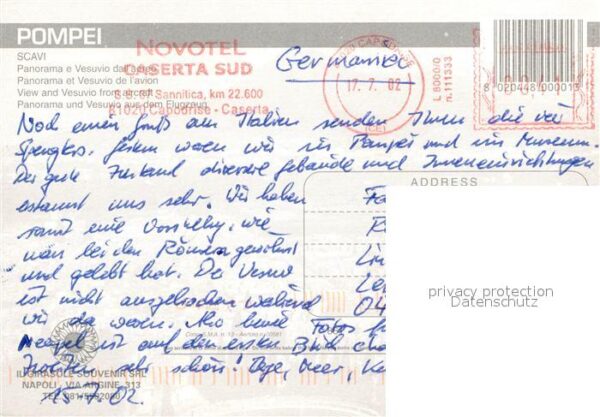 POMPEI
SCAVI
Panorama e Vesuvio dall'aereo
Panorama et Vesuvio de l'avion
View and Vesuvio from aircraft
Panorama und Vesuvio aus dem Flugzeug
NOVOTEL
CASERTA SUD
S.S. 87 Sannitica, km 22.600
81020 Capodrise - Caserta
Germania
81020 CAPODRISE
17. 7. 02
(CE)
L 800000
n. 111333
8 020448 000013
Noch einen Gruß aus Italien senden Ihnen die vier
gestern waren wir in Pompei und im Museum.
Der gute Zustand diverser Gebäude und Inneneinrichtungen
erstaunt uns sehr. Wir haben
somit eine Vorstellung, wie
man bei den Römern gewohnt
und gelebt hat. Der Vesuv
ist nicht ausgebrochen während
wir da waren. Also keine Fotos
Neapel ist auf den ersten Blick
sehr schön!
15.7.02.
ADDRESS
privacy protection
Datenschutz
04
IL GIRASOLE SOUVENIR SRL
NAPOLI - VIA ARGINE, 313
TEL. 081/5592080